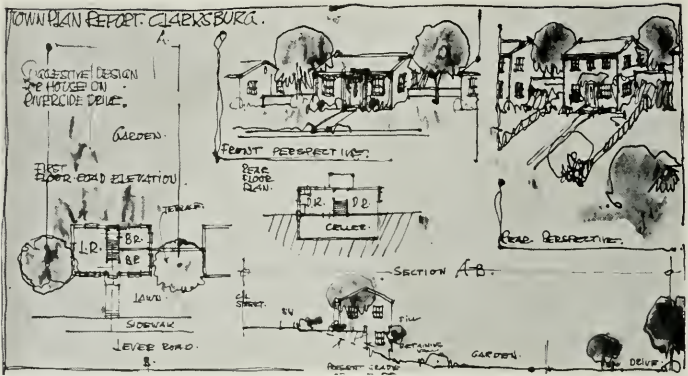 TOWN PLAN REPORT. CLARKSBURG.
A.
SUGGESTIVE DESIGN
FOR HOUSE ON
RIVERSIDE DRIVE.
GARDEN.
FIRST
FLOOR ROAD ELEVATION
TERRACE
L.R.
B.R.
B.R.
LAWN.
SIDEWAK
LEVER ROAD.
B.
FRONT PERSPECTIVE.
REAR
FLOOR
PLAN.
D.R.
CELLER.
REAR PERSPECTIVE.
SECTION A-B.
STREET.
SW
SILL
RETAINING
GARDEN.
DRIVE.
PRESENT GRADE